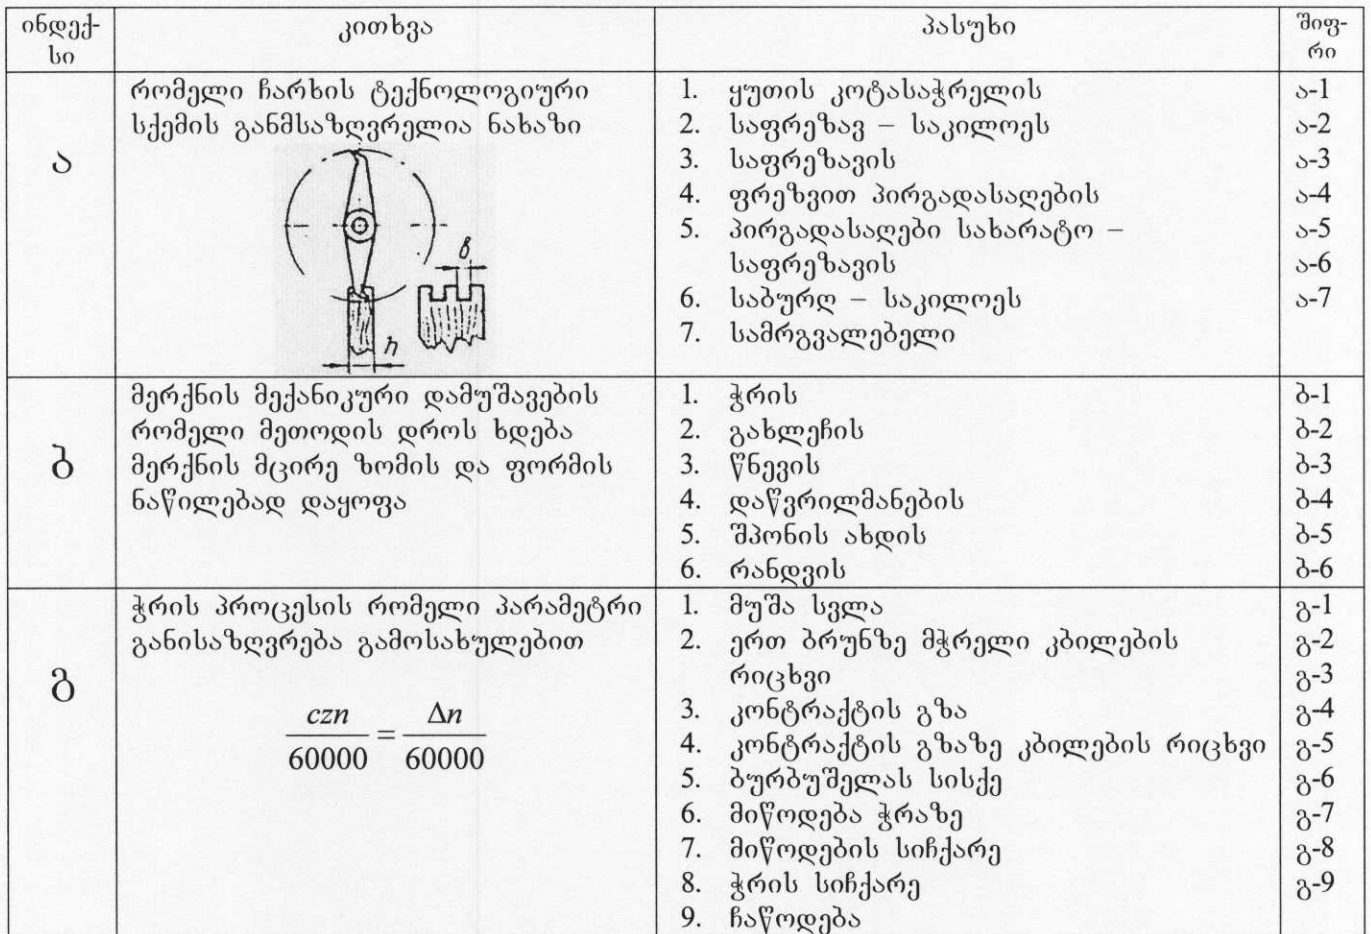 ინდექ-
სი
კითხვა
პასუხი
შიფ-
რი
ა
რომელი ჩარხის ტექნოლოგიური
სქემის განმსაზღვრელია ნახაზი
в
h
1. ყუთის კოტასაჭრელის
2. საფრეზავ – საკილოეს
3. საფრეზავის
4. ფრეზვით პირგადასაღების
5. პირგადასაღები სახარატო –
საფრეზავის
6. საბურღ – საკილოეს
7. სამრგვალებელი
ა-1
ა-2
ა-3
ა-4
ა-5
ა-6
ა-7
ბ
მერქნის მექანიკური დამუშავების
რომელი მეთოდის დროს ხდება
მერქნის მცირე ზომის და ფორმის
ნაწილებად დაყოფა
1. ჭრის
2. გახლეჩის
3. წნევის
4. დაწვრილმანების
5. შპონის ახდის
6. რანდვის
ბ-1
ბ-2
ბ-3
ბ-4
ბ-5
ბ-6
გ
ჭრის პროცესის რომელი პარამეტრი
განისაზღვრება გამოსახულებით
czn/60000 = Δn/60000
1. მუშა სვლა
2. ერთ ბრუნზე მჭრელი კბილების
რიცხვი
3. კონტრაქტის გზა
4. კონტრაქტის გზაზე კბილების რიცხვი
5. ბურბუშელას სისქე
6. მიწოდება ჭრაზე
7. მიწოდების სიჩქარე
8. ჭრის სიჩქარე
9. ჩაწოდება
გ-1
გ-2
გ-3
გ-4
გ-5
გ-6
გ-7
გ-8
გ-9